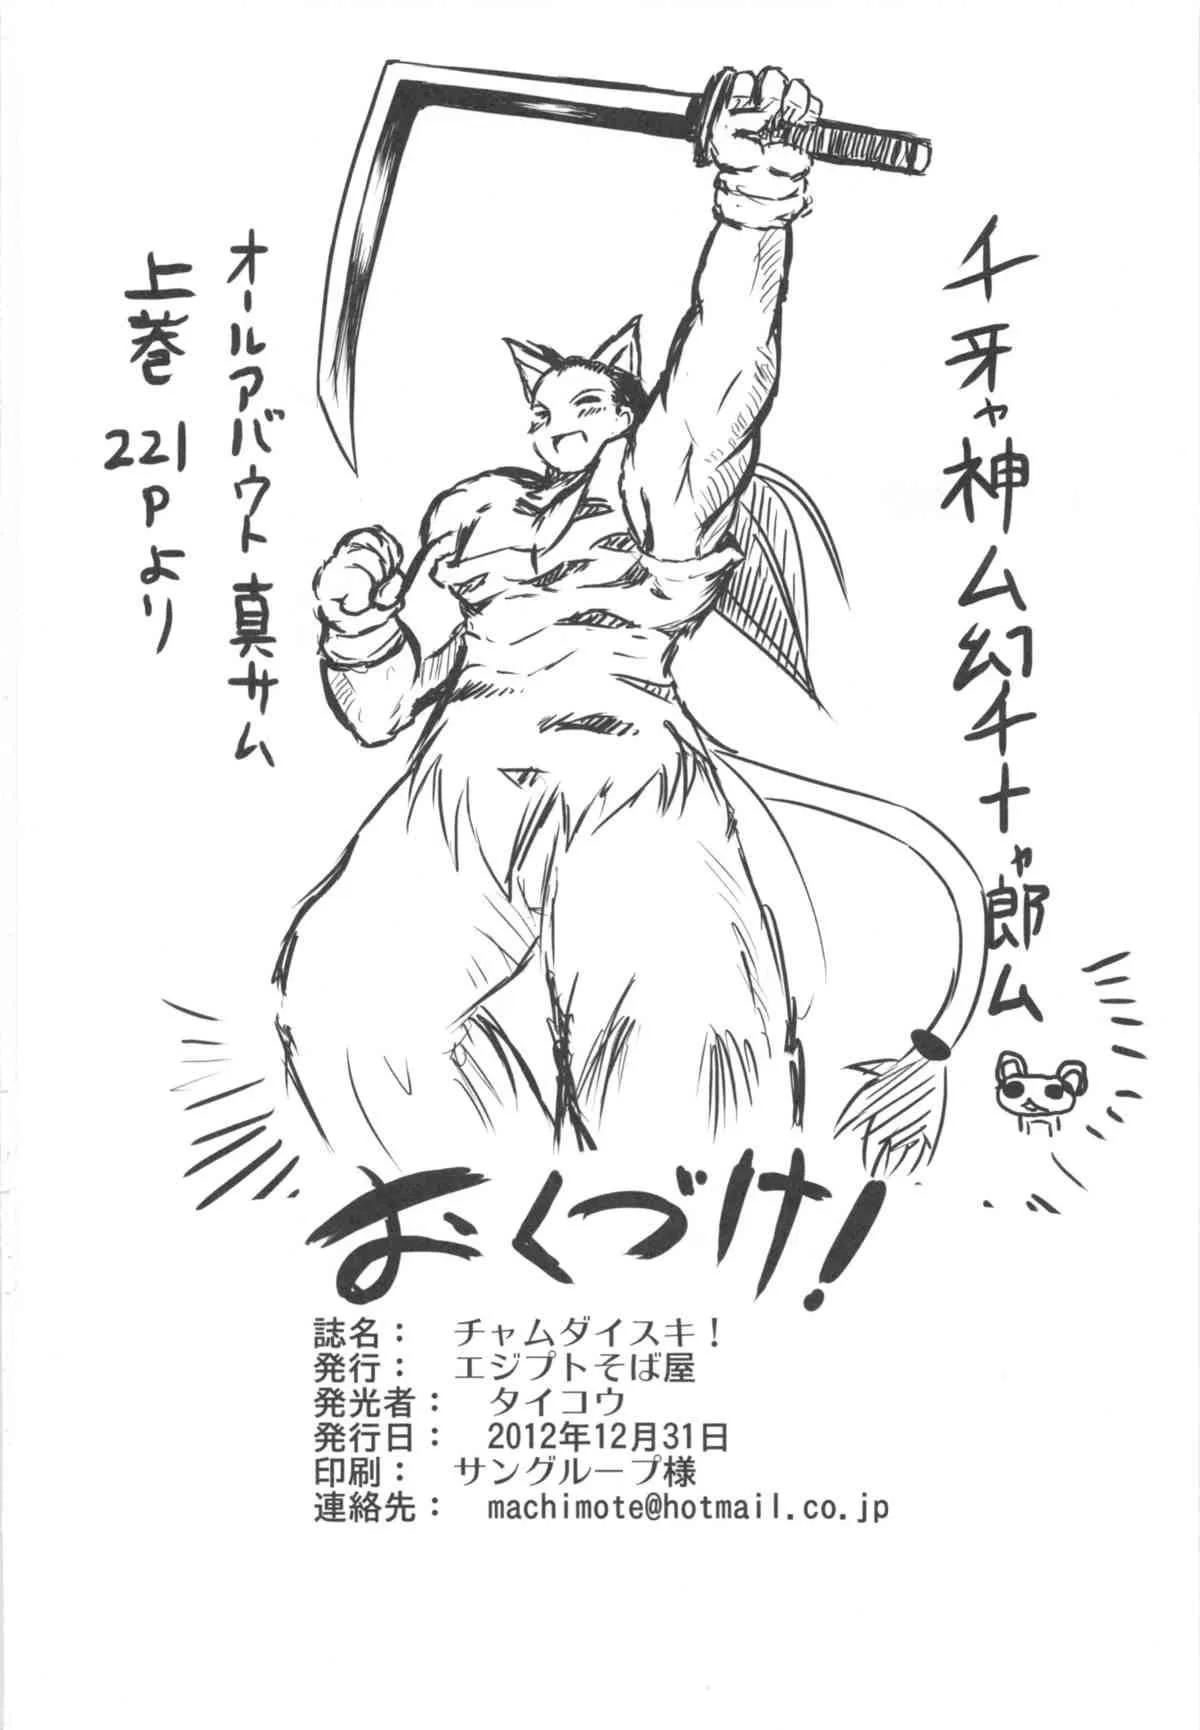 チ牙ャ神ム幻チ十ャ郎ム
オールアバウト真サム
上巻 221Pより
おくづけ!
誌名： チャムダイスキ！
発行： エジプトそば屋
発光者： タイコウ
発行日： 2012年12月31日
印刷： サングループ様
連絡先： machimote@hotmail.co.jp